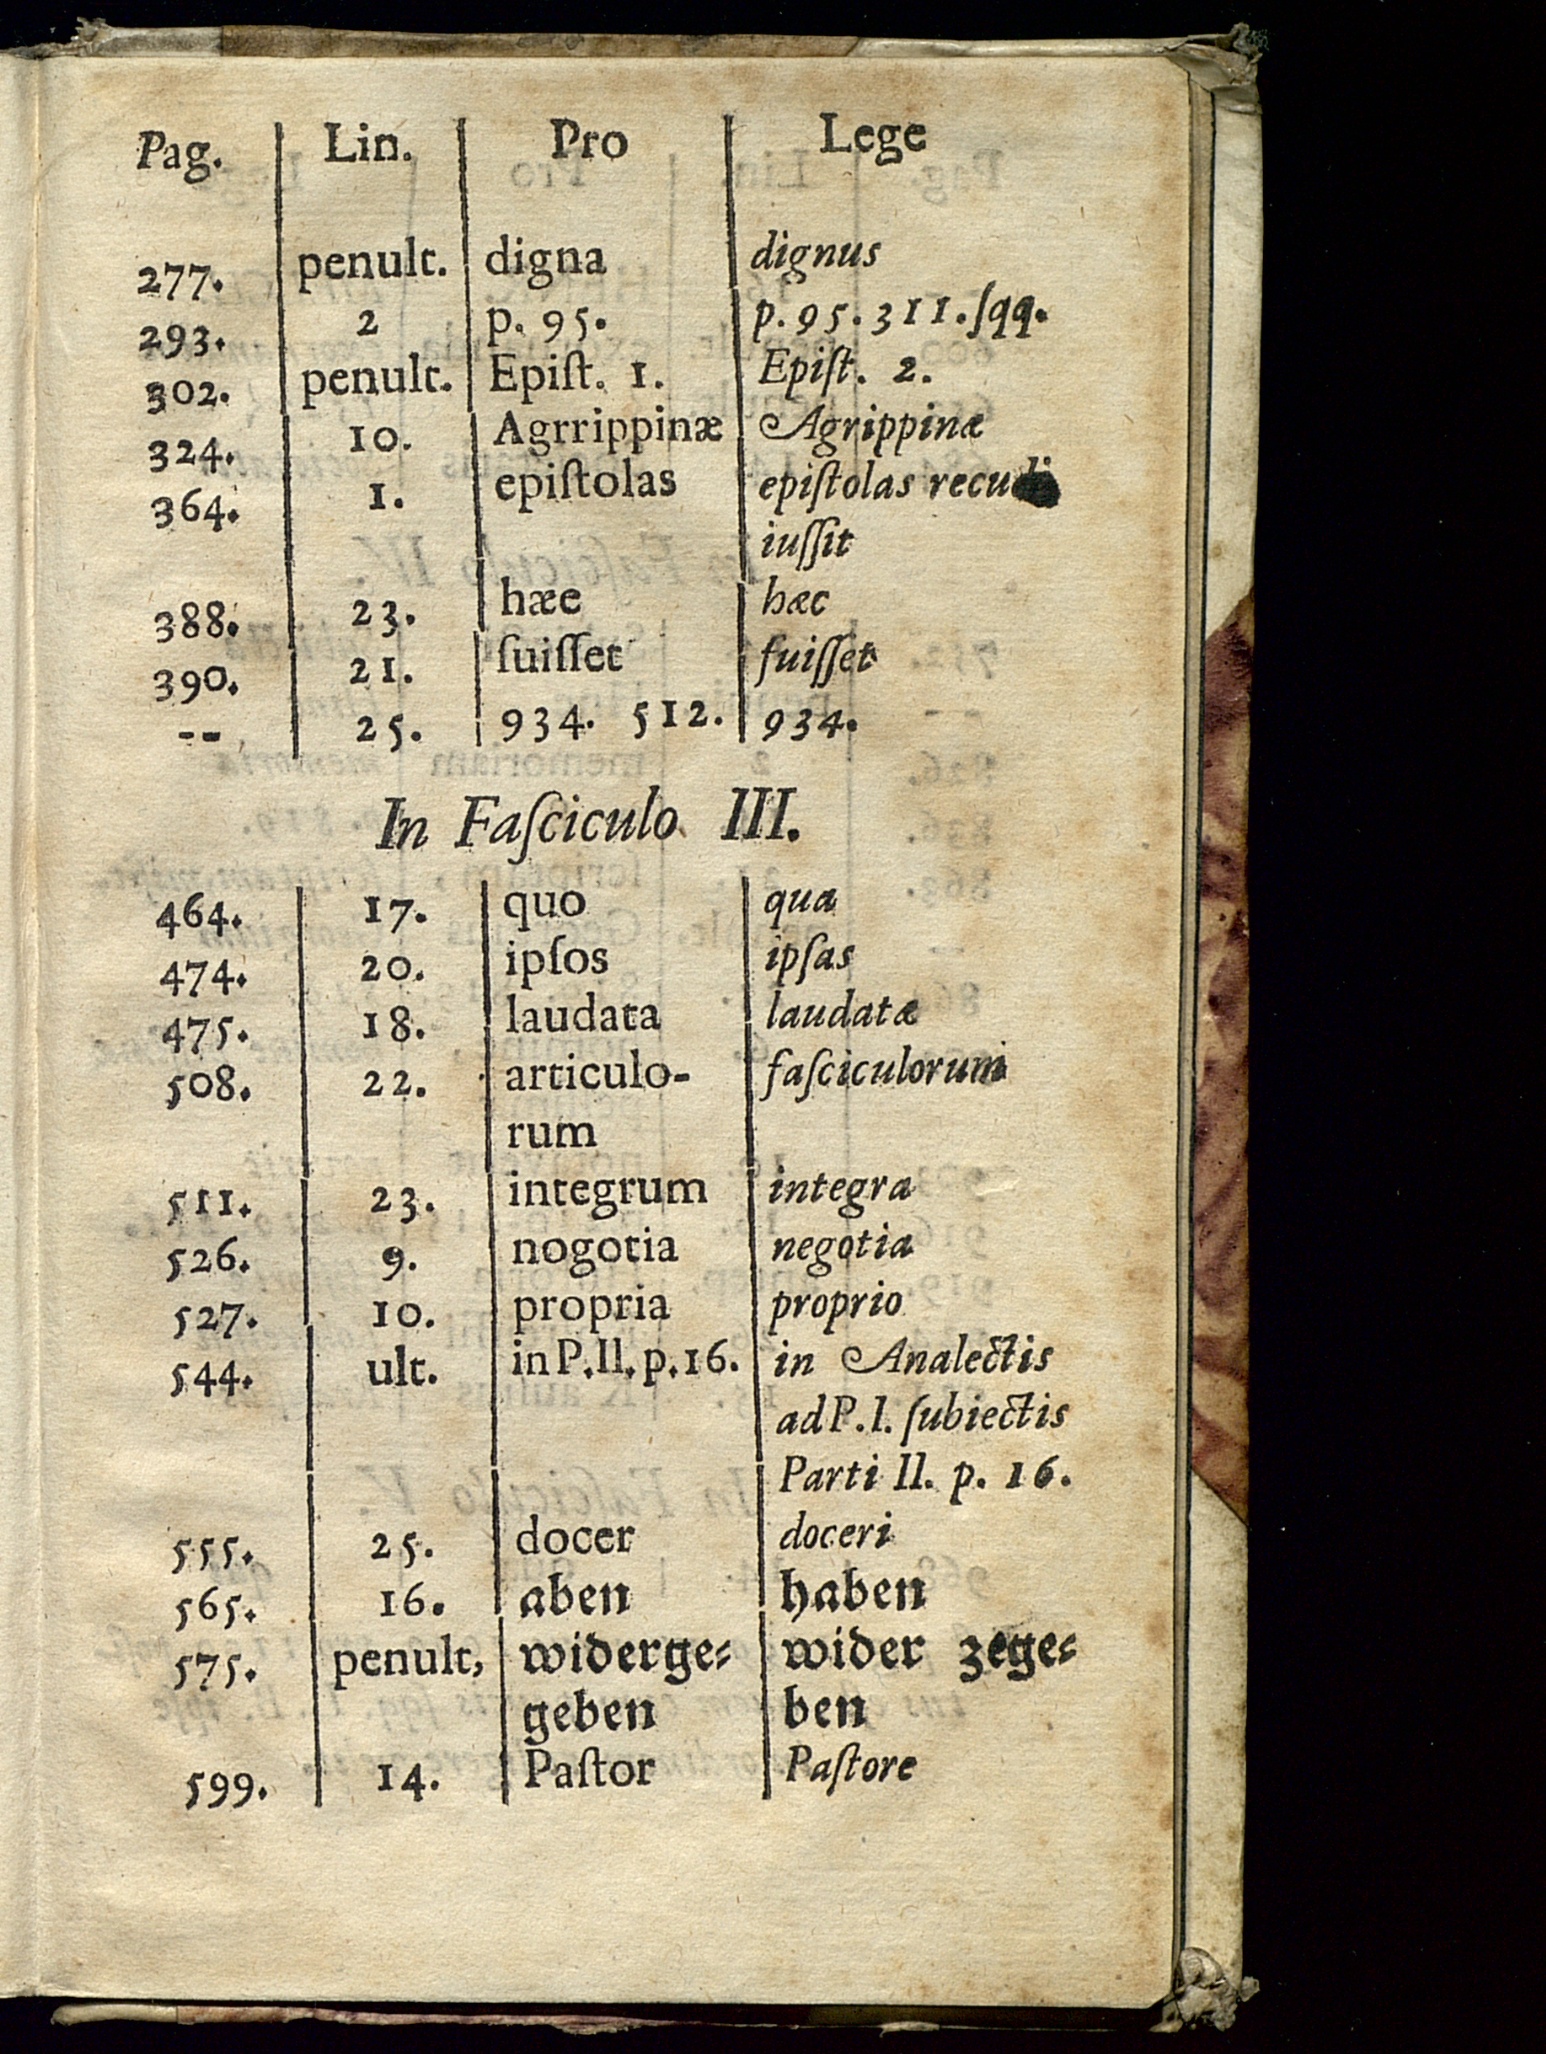 Pag. Lin. Pro Lege
277. penult. digna dignus
293. 2 p. 95. p. 95. 311. ſqq.
302. penult. Epiſt. 1. Epiſt. 2.
324. 10. Agrrippinæ Agrippinæ
364. 1. epiſtolas epiſtolas recudi
iuſſit
388. 23. hæe hæc
390. 21. ſuiſſet fuiſſet
-- 25. 934. 512. 934.
In Faſciculo III.
464. 17. quo qua
474. 20. ipſos ipſas
475. 18. laudata laudatæ
508. 22. articulo- faſciculorum
rum
511. 23. integrum integra
526. 9. nogotia negotia
527. 10. propria proprio
544. ult. in P. II. p. 16. in Analectis
ad P. I. ſubiectis
Parti II. p. 16.
555. 25. docer doceri
565. 16. aben haben
575. penult, widerge⸗ wider zege⸗
geben ben
599. 14. Paſtor Paſtore